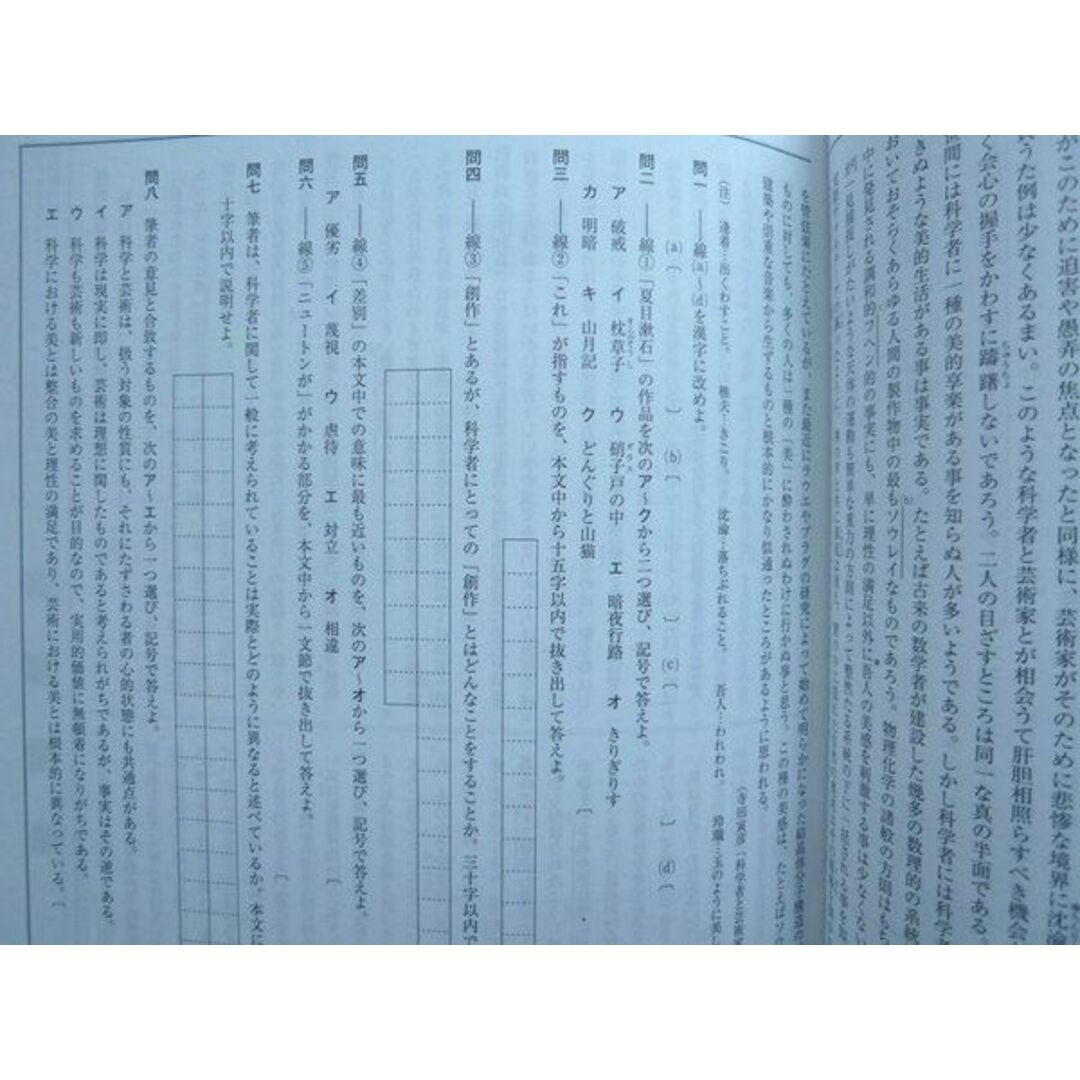 がこのために迫害や愚弄の焦点となったと同様に、芸術家がそのために悲惨な境界に沈淪
うた例は少なくあるまい。このような科学者と芸術家とが相会うて肝胆相照らすべき機会
く会心の握手をかわすに躊躇しないであろう。二人の目ざすところは同一な真の半面である。
ちゅうちょ
世間には科学者に一種の美的享楽がある事を知らぬ人が多いようである。しかし科学者には科学者
きぬような美的生活がある事は事実である。たとえば古来の数学者が建設した幾多の数理的の系統
おいておそらくあらゆる人間の製作物中の最もソウレイなものであろう。物理化学の諸般の方則はもち
(b)
中に発見される調和的フヘン的の事実にも、単に理性の満足以外に吾人の美感を刺激する事は少なくない
が一見捕捉しがたいような天体の運動も簡単な重力の方則によって整然たる系統の下に一括される事を知
を管弦楽にたとえているが、また最近にラウエやブラグの研究によって始めて明らかになった結晶体分子構造の
ものに対しても、多くの人は一種の「美」に酔わされぬわけに行かぬ事と思う。この種の美感は、たとえばソウ
建築や荘重な音楽から生ずるものと根本的にかなり似通ったところがあるように思われる。
(寺田寅彦「科学者と芸術家
(注) 逢着…出くわすこと。 樵夫…きこり。 沈淪…落ちぶれること。 吾人…われわれ。 玲瓏…玉のように美し
問一 ――線(a)～(d)を漢字に改めよ。
(a)〔 〕 (b)〔 〕 (c)〔 〕 (d)〔
問二 ――線①「夏目漱石」の作品を次のア～クから二つ選び、記号で答えよ。
ア 破戒 イ 枕草子 ウ 硝子戸の中 エ 暗夜行路 オ きりぎりす
カ 明暗 キ 山月記 ク どんぐりと山猫 〔
問三 ――線②「これ」が指すものを、本文中から十五字以内で抜き出して答えよ。
問四 ――線③「創作」とあるが、科学者にとっての「創作」とはどんなことをすることか。三十字以内で
問五 ――線④「差別」の本文中での意味に最も近いものを、次のア～オから一つ選び、記号で答えよ。
ア 優劣 イ 蔑視 ウ 虐待 エ 対立 オ 相違 〔
問六 ――線⑤「ニュートンが」がかかる部分を、本文中から一文節で抜き出して答えよ。
〔
問七 筆者は、科学者に関して一般に考えられていることは実際とどのように異なると述べているか。本文に
十字以内で説明せよ。
問八 筆者の意見と合致するものを、次のア～エから一つ選び、記号で答えよ。
ア 科学と芸術は、扱う対象の性質にも、それにたずさわる者の心的状態にも共通点がある。
イ 科学は現実に即し、芸術は理想に関したものであると考えられがちであるが、事実はその逆である。
ウ 科学も芸術も新しいものを求めることが目的なので、実用的価値に無頓着になりがちである。
エ 科学における美とは整合の美と理性の満足であり、芸術における美とは根本的に異なっている。 〔